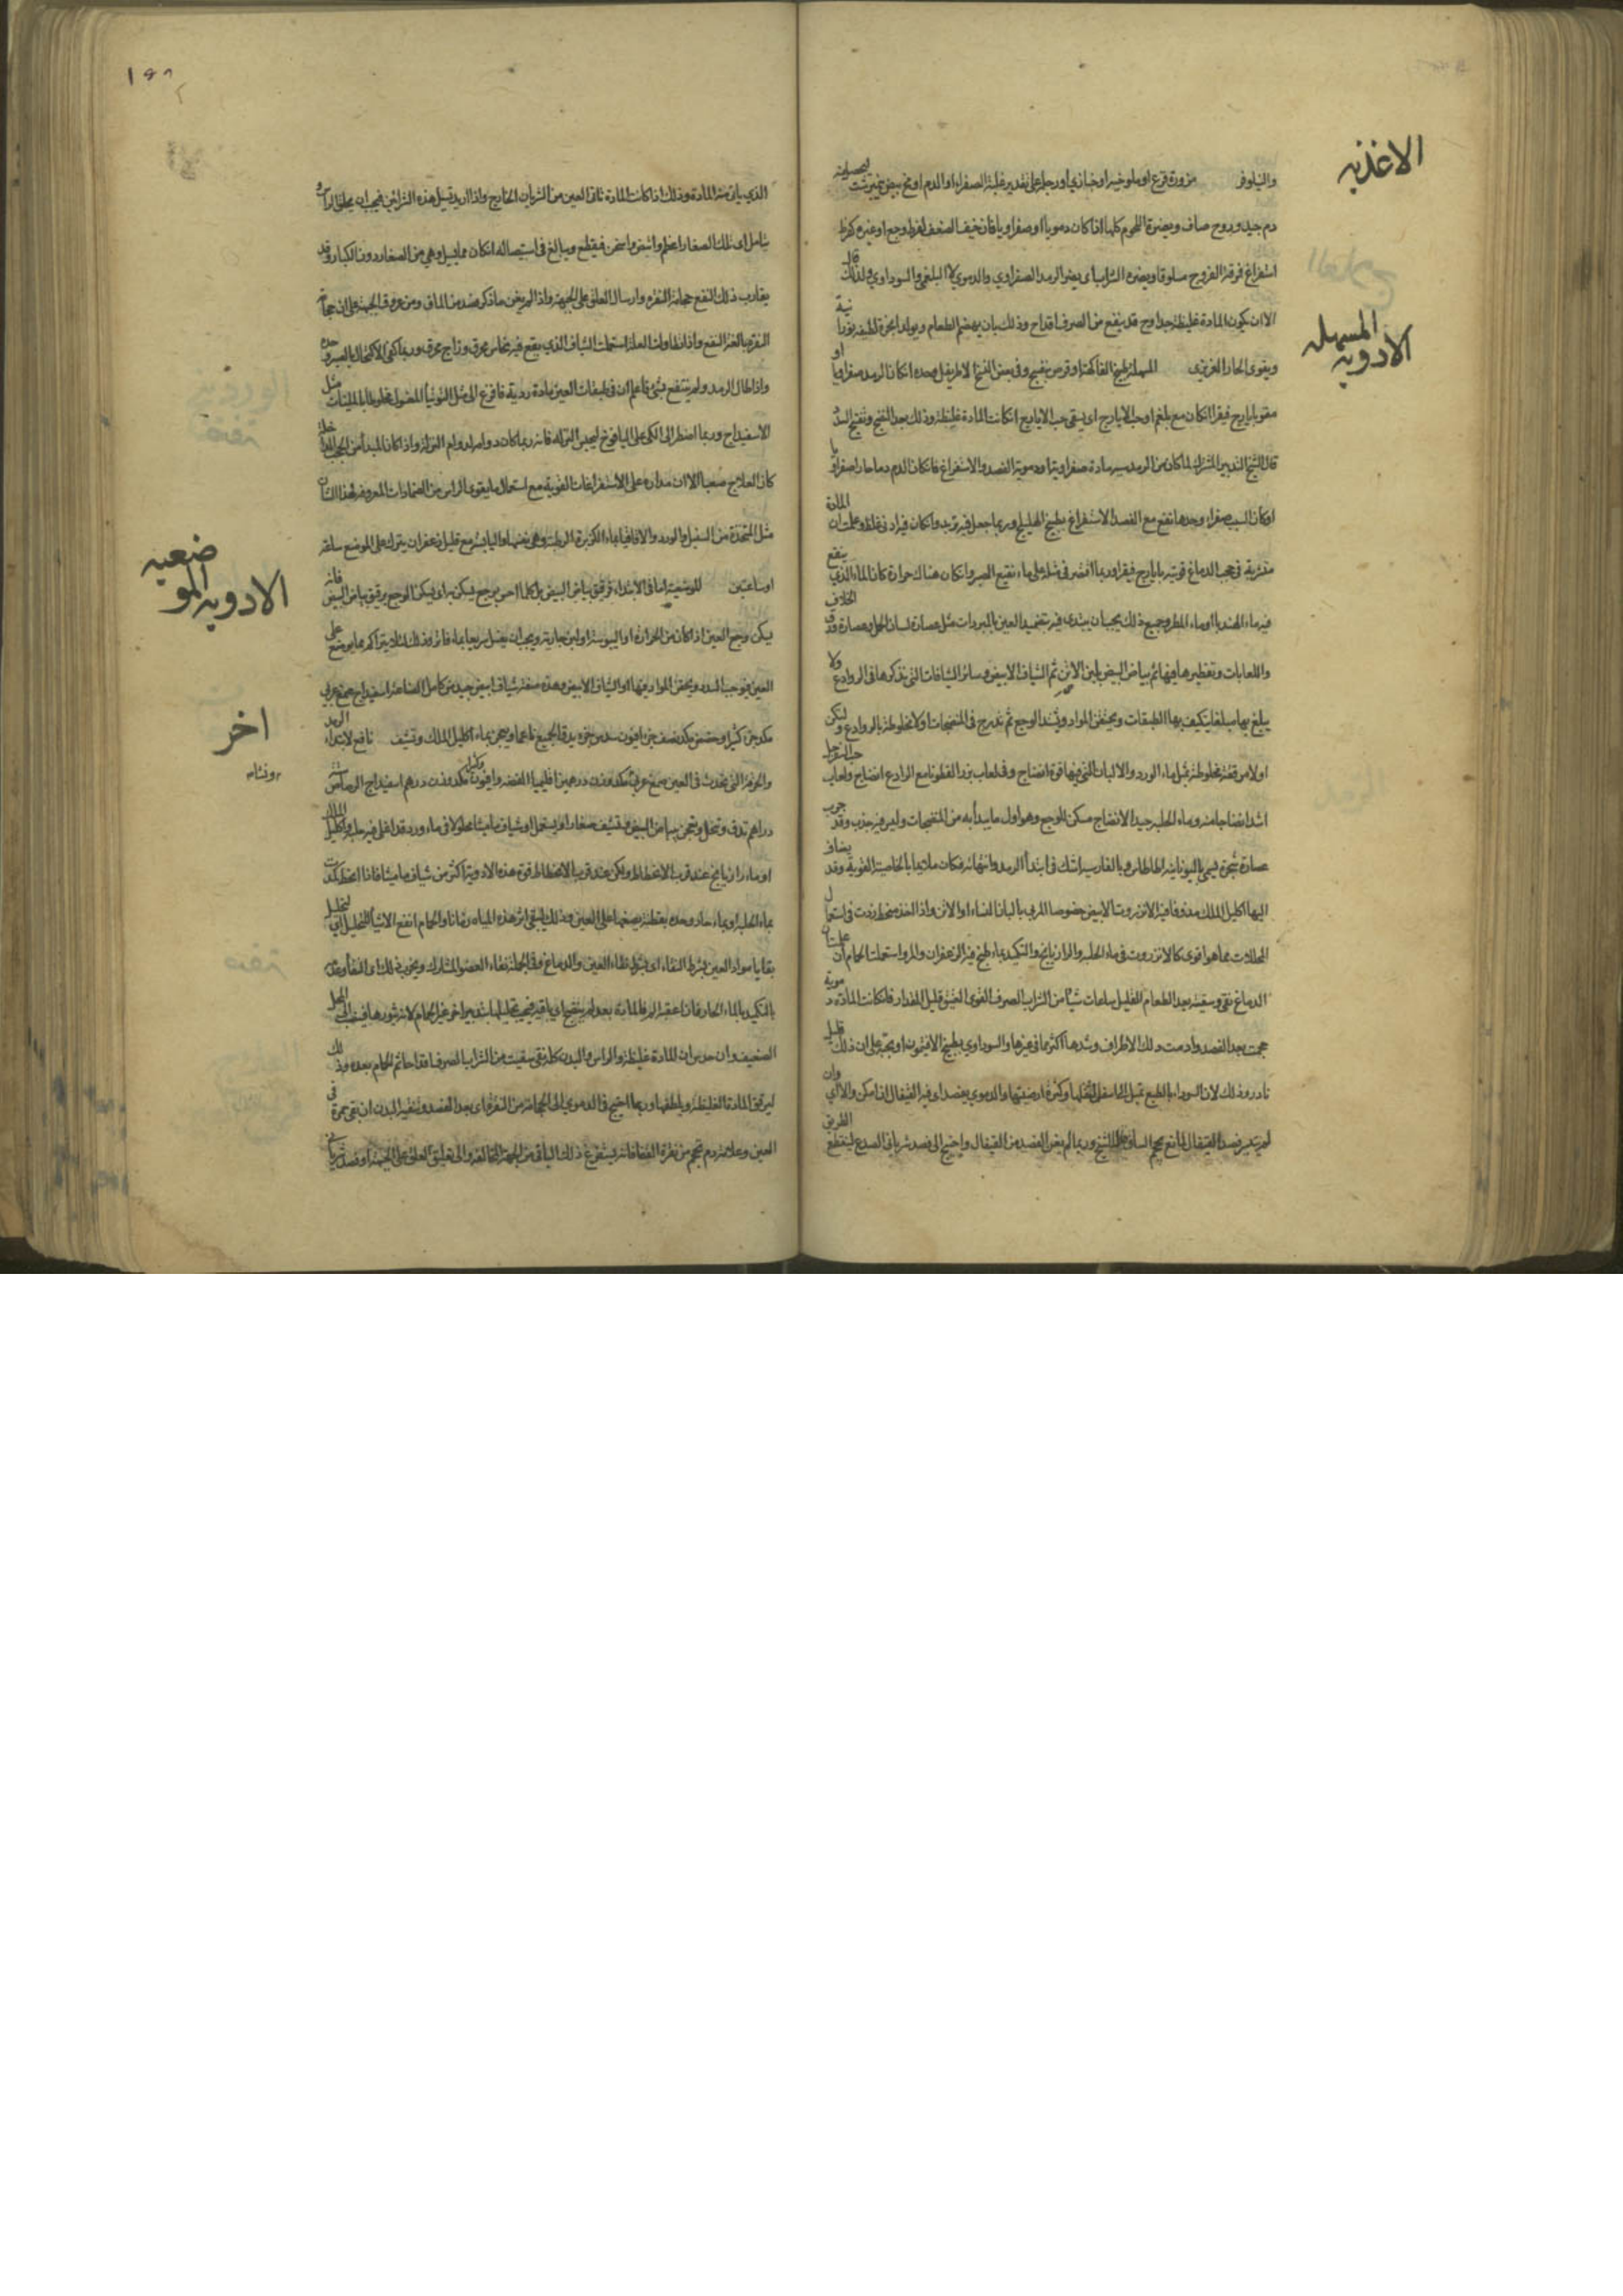 الاغذيه
والنيلوفر مزورة قرع او ملوخيه او خبازي او رجله على تقدير غلبة الصفراء او الدم او مح بيض نيمبرشت ليحصل منه
دم جيد وروح صاف ويضره اللحوم كلها اذا كان دمويا او صفراويا فان خيف الضعف لفرط وجع او غيره كفرط
استفراغ فمرقة الفروج مسلوقا ويضره الشراب اى يضر الرمد الصفراوي والدموي لا البلغمي والسوداوي ولذلك قال
الا ان يكون المادة غليظة جدا وح قد ينفع من الصرف اقداح وذلك بان يهضم الطعام ويولد ابخرة لطيفه
المسهله
الادويه
ويقوى الحار الغريزى المسهلة طبيخ الفاكهة او قرص بنفسج وفى بعض النسخ الاطريفل وحده ان كان الرمد صفراويا او
مقويا بايارج فيقرا ان كان مع بلغم او حب الايارج اى يسقى حب الايارج ان كانت المادة غليظة وذلك بعد النضج وتفتيح السدد
قال الشيخ التدبير المشترك لما كان من الرمد سببه مادة صفراوية او دموية الفصد والاستفراغ فان كان الدم دما حارا صفراويا
او كان السبب صفراء وحدها نفع مع الفصد الاستفراغ بطبيخ الهليلج وربما جعل فيه تربد وان كان فيه ادنى غلظ وعلمت ان المادة
متشربة فى حجب الدماغ قويته بايارج فيقرا وربما اقتصر فى مثله على ماء نقيع الصبر وان كان هناك حرارة كان الماء الذي ينقع
فيه ماء الهندبا او ماء المطر وجميع ذلك يجب ان يبتدى فيه بتضميد العين بالمبردات مثل عصارة لسان الحمل وعصارة ورق الخلاف
واللعابات وتقطيرها فيها ثم بياض البيض بلبن الاتن ثم الشياف الابيض وسائر الشيافات التى نذكرها فى الروادع ولا
يبلغ بها مبلغا يتكيف بها الطبقات ويحتقن المواد ويشتد الوجع ثم تدرج فى المنضجات اولا مخلوطة بالروادع ولتكن
اولا مرققة مخلوطة بمثل ماء الورد والالبان التى فيها قوة انضاج وفى لعاب بزر القطونا مع الردع انضاج ولعاب حب السفرجل
اشد انضاجا منه وماء الحلبه جيد الانضاج مسكن للوجع وهو اول ما يبدأ به من المنضجات وليس فيه جذب وقد جرب
عصارة شجرة تسمى باليونانية اطاطا وبالفارسيه اشك فى ابتدأ الرمد وانتهائه فكان ملائما بالخاصية القوية وقد يضاف
اليها اكليل الملك مدوفا فيه الانزروت الابيض خصوصا المربى بالبان النساء او الاتن واذا اخذ ينحط زدت فى استعمال
المحللات مما هو اقوى كالانزروت فى ماء الحلبه والرازيانج والتكميد بماء طبخ فيه الزعفران والمر واستعملت الحمام ان علمت ان
الدماغ نقى وسقيته بعد الطعام القليل بساعات شيئا من الشراب الصرف القوى العتيق قليل المقدار فان كانت المادة دموية
حجمت بعد الفصد وادمت دلك الاطراف وشدها اكثر مما فى غيرها والسوداوي بطبيخ الافتيمون او بحبه على ان ذلك قليل
نادر وذلك لان السوداء بالطبع تميل الى اسفل لثقلها وكثرة ارضيتها والدموي بفصد اى فيه القيفال اذا امكن والا اي وان
لم يتيسر فصد القيفال لمانع حجم الساق للشيخ وربما لم يغن الفصد من القيفال واحتيج الى فصد شرياني الصدغ لينقطع الطريق
الذي ياتى منه المادة وذلك اذا كانت المادة تاتى العين من الشريان الخارج واذا اريد تسيل هذه الشرائين فيجب ان يحلق الراس و
يتامل اى تلك الصغار اعظم وانبض واسخن فيقطع ويبالغ فى استيصاله ان كان مما يسيل وهى من الصغار دون الكبار وقد
يقارب ذلك النفع حجامة النقره وارسال العلق على الجبهة واذا لم يغن ما ذكر فصد من الماق ومن عروق الجبهة على ان حجامة
النقرة بالغة النفع واذا تطاولت العلة استعملت الشياف الذي يقع فيه نحاس محرق وزاج محرق وربما كفى الاكتحال بالصبر وحده
واذا طال الرمد ولم ينتفع بشئ فاعلم ان فى طبقات العين مادة ردية فافزع الى مثل التوتيا المغسول مخلوطا بالملينات مثل
الاسفيداج وربما اضطر الى الكى على اليافوخ ليحبس النزله فانه ربما كان دوامه لدوام النزلة واذا كان المبدأ من الحجب الداخلة
كان العلاج صعبا الا ان مداره على الاستفراغات القوية مع استعمال ما يقوى الراس من الضمادات المعروفة لهذا الشان
مثل المتخذة من السنبل والورد والاقاقيا بماء الكزبرة الرطبه وهى نفسها واليابسه مع قليل زعفران يترك على الموضع ساعة
ضعيه
الادويه المو
او ساعتين الموضعيه اما فى الابتداء فرقيق بياض البيض بل كلما احس بوجع يسكن به اى يسكن الوجع برقيق بياض البيض فانه
يسكن وجع العين اذا كان من الحرارة او اليبوسة او لبن جارية ويجب ان يغسل سريعا بماء فاتر وذلك لئلا يتراكم مما يوضع على
العين فيوجب السدد ويحقن المواد فيها او الشياف الابيض وهذه صفة شياف ابيض جيد من كامل الصناعة اسفيداج صمغ عربي
اخر
مكد جزء كثيرا وحضض مكد نصف جزء افيون سدس جزء يدق الجميع ناعما ويعجن بماء اكليل الملك وتشيف نافع لابتداء الرمد
ونشاء
والحمرة التى تحدث فى العين صمغ عربي مكد وزن درهمين اقليميا الفضة وافيون مكد وزن درهم اسفيداج الرصاص
دراهم تدق وتنخل وتعجن ببياض البيض وتشيف صغارا او يستعمل او شياف ماميثا محلولا فى ماء ورد قد اغلى فيه حلبه واكليل الملك
او ماء رازيانج عند قرب الانحطاط وليكن عند قرب الانحطاط قوة هذه الادوية اكثر من شياف ماميثا فاذا انحط كمدت
بماء الحلبه او بماء حار وحده بقطنة يضعها على العين وذلك ليبقى اثر هذه المياه زمانا والحمام انفع الاشيأ للتحليل اى لتحليل
بقايا مواد العين بشرط النقاء اى بشرط نقاء العين والدماغ وفى الجملة نقاء العضو المشارك ويجرب ذلك اى النقأ وعدمه
بالتكميد بالماء الحار فان اعقب الم فالمادة بعد لم ينضج اى باقيه فيجب تحليلها بتدبير اخر غير الحمام لانه يثورها فينصب الى المحل
الضعيف وان حدس ان المادة غليظة والراس والبدن كله نقى سقيت من الشراب الصرف اقداحا ثم الحمام بعده وذلك
ليرقق المادة الغليظة ويلطفها وربما احتيج فى الدموي الى الحجامة من النقرة اى بعد الفصد وتنقية البدن ان بقى حمرة فى
العين وعلامته دم تحجم من نقرة القفا فانه يستفرغ ذلك الباقى من الجهة المخالفه والى تعليق العلق على الجبهة او فصد شرياني